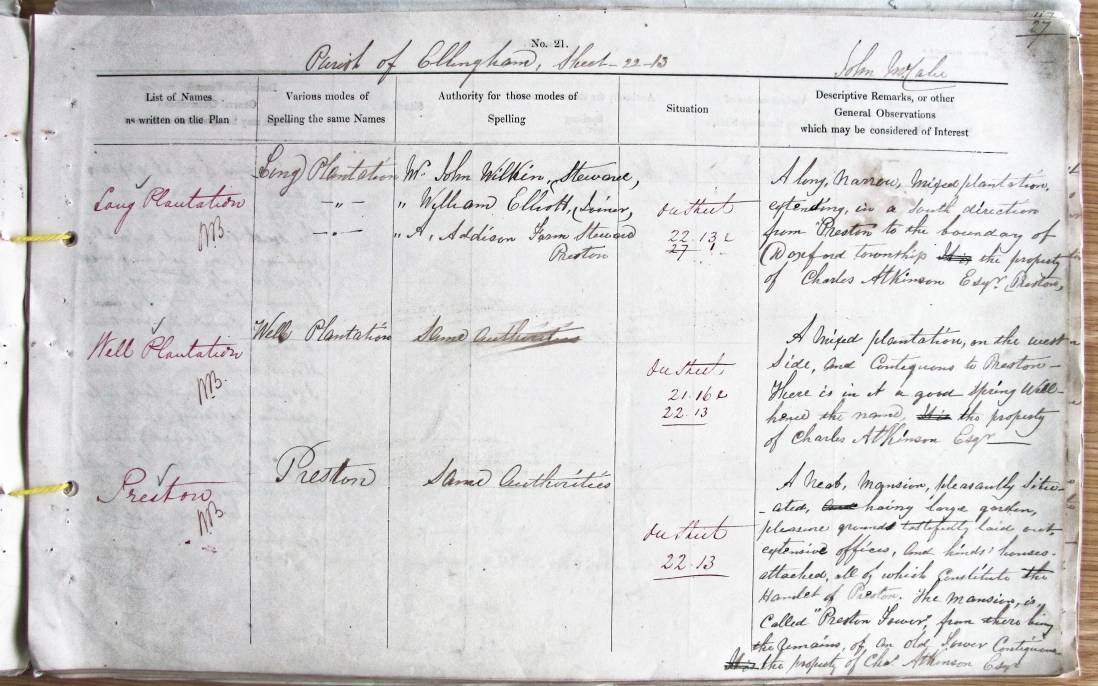 27
No. 21.
Parish of Ellingham, Sheet - 22 - 13
John McCabe
List of Names
as written on the Plan
Various modes of
Spelling the same Names
Authority for those modes of
Spelling
Situation
Descriptive Remarks, or other
General Observations
which may be considered of Interest
Long Plantation
Long Plantation
- " -
- " -
Mr. John Wilkin, Steward,
" William Elliott, Joiner,
" A. Addison Farm Steward
Preston
On Sheet
22.13 &
27 1.
A long, narrow, mixed plantation,
extending, in a South direction
from Preston to the boundary of
Doxford township It is the property
of Charles Atkinson Esqr. Preston,
Well Plantation
Well Plantation
Same Authorities
On Sheet,
21.16 &
22.13
A mixed plantation, on the west
side, and Contiguous to Preston -
There is in it a good Spring Well -
hence the name, It is the property
of Charles Atkinson Esqr
Preston
Preston
Same Authorities
On Sheet
22.13
A neat, Mansion, pleasantly Situ-
-ated, and having large garden,
pleasure grounds tastefully laid out,
extensive offices, and hinds' houses -
attached, all of which Constitute the
Hamlet of Preston. The Mansion, is,
Called "Preston Tower", from there being
the remains, of an old Tower Contiguous
It is the property of Chas Atkinson Esqr